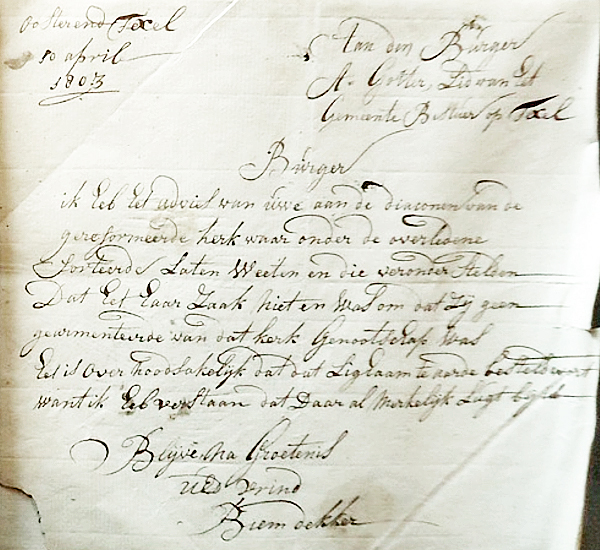 Oosterend Texel
10 april
1803
Aan den Bürger
A. Gotter, Lid van Et
Gemeente Bestuer op Texel
Bürger
ik Eeb Et advies van üwe aan de diaconen van de
gereformeerde kerk waar onder de overledene
Sorteerde Laten Weeten en die veronder Stelden
Dat Eet Eaar Zaak niet en Was om dat Zij geen
gearmenteerde van dat kerk Genootscap Was
Eet is Over noodsakelijk dat dat Liglaam te aarde besteld wert
want ik Eeb verstaan dat Daar al Merkelijk Lügt bij is
Blijve na Groetenis
üEd vrind
Biem dekker